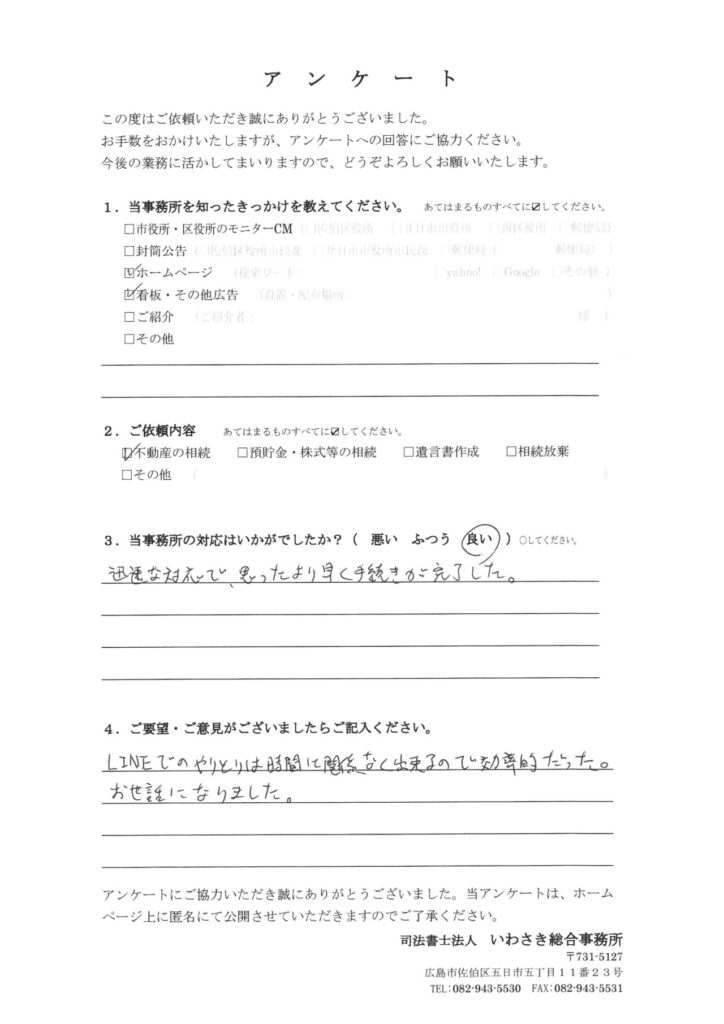 アンケート
この度はご依頼いただき誠にありがとうございました。
お手数をおかけいたしますが、アンケートへの回答にご協力ください。
今後の業務に活かしてまいりますので、どうぞよろしくお願いいたします。
1．当事務所を知ったきっかけを教えてください。 あてはまるものすべてに☑してください。
□市役所・区役所のモニターCM（□佐伯区役所 □廿日市市役所 □西区役所 □郵便局）
□封筒公告（□佐伯区役所市民課 □廿日市市役所市民課 □郵便局（ 郵便局））
☑ホームページ （検索ワード： □yahoo! □Google □その他 ）
☑看板・その他広告 （設置・配布場所： ）
□ご紹介 （ご紹介者： 様 ）
□その他
2．ご依頼内容 あてはまるものすべてに☑してください。
☑不動産の相続 □預貯金・株式等の相続 □遺言書作成 □相続放棄
□その他 （ ）
3．当事務所の対応はいかがでしたか？（ 悪い ふつう 良い ）○してください。
迅速な対応で、思ったより早く手続きが完了した。
4．ご要望・ご意見がございましたらご記入ください。
LINEでのやりとりは時間に関係なく出来るので効率的だった。
お世話になりました。
アンケートにご協力いただき誠にありがとうございました。当アンケートは、ホーム
ページ上に匿名にて公開させていただきますのでご了承ください。
司法書士法人 いわさき総合事務所
〒731-5127
広島市佐伯区五日市五丁目１１番２３号
TEL:082-943-5530 FAX:082-943-5531